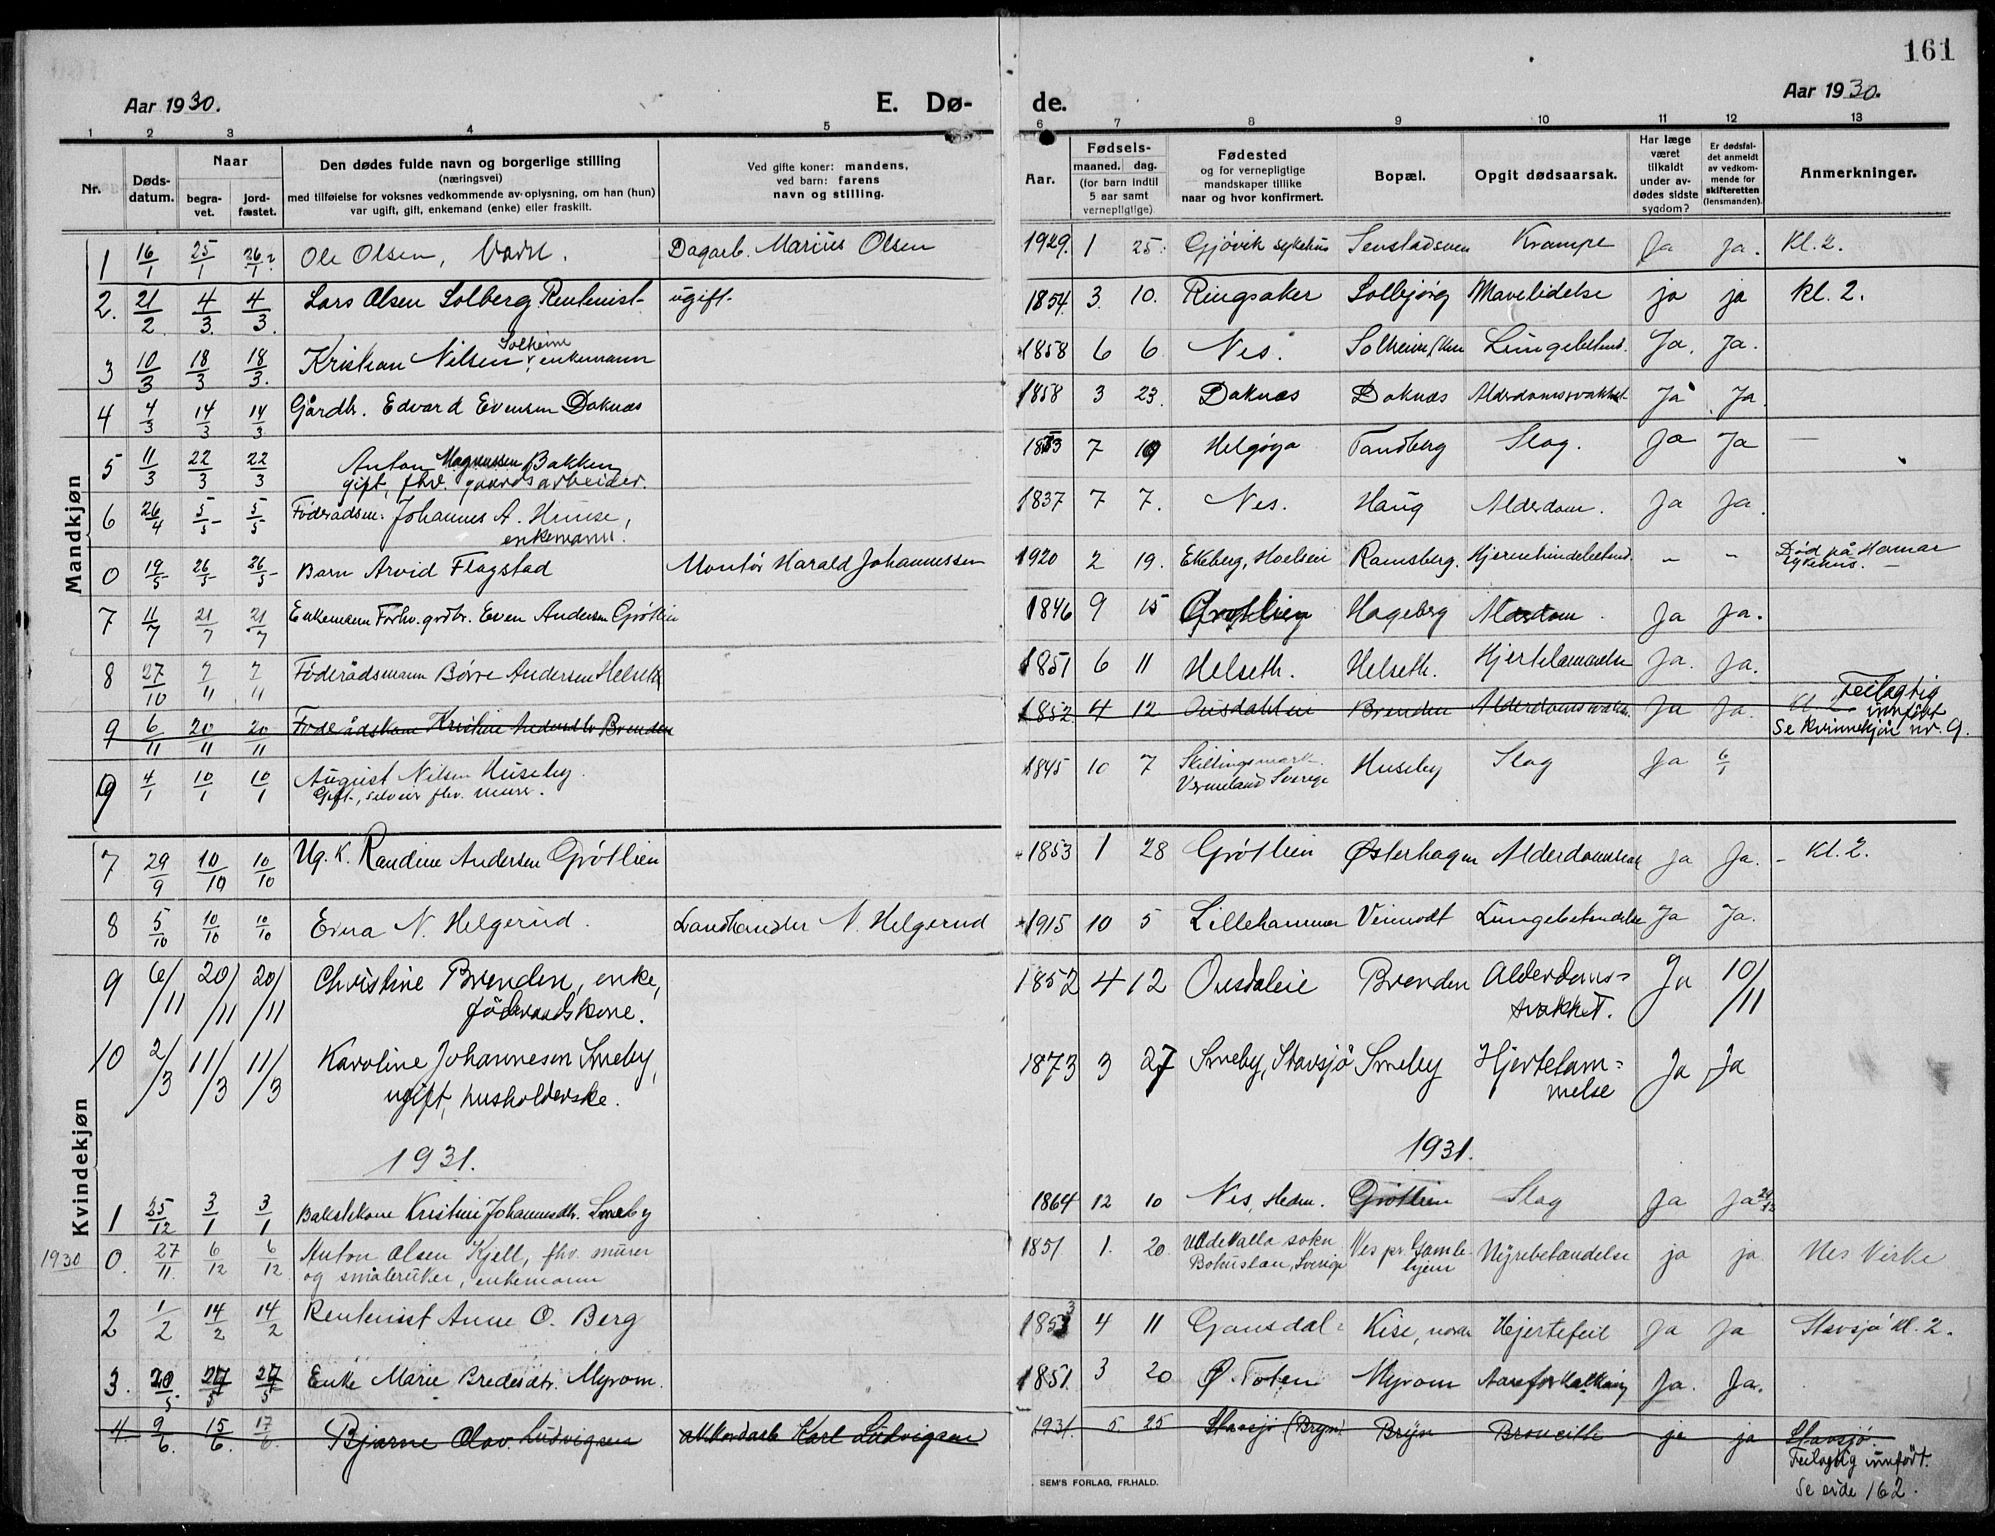 161
Aar 1930.
E. Dø-
de.
Aar 1930.
1 2 3 4 5 6 7 8 9 10 11 12 13
Nr.
Døds-
datum.
Naar
begra-
vet.
jord-
fæstet.
Den dødes fulde navn og borgerlige stilling
(næringsvei)
med tilføielse for voksnes vedkommende av oplysning, om han (hun)
var ugift, gift, enkemand (enke) eller fraskilt.
Ved gifte koner: mandens,
ved barn: farens
navn og stilling.
Aar.
Fødsels-
maaned. dag.
(for barn indtil
5 aar samt
vernepligtige)
Fødested
og for vernepligtige
mandskaper tillike
naar og hvor konfirmert.
Bopæl.
Opgit dødsaarsak.
Har læge
været
tilkaldt
under av-
dødes sidste
sygdom?
Er dødsfal-
det anmeldt
av vedkom-
mende for
skifteretten
(lensmanden).
Anmerkninger.
Mandkjøn
1 16/1 25/1 26/1? Ole Olsen, barn. Dagarb. Marius Olsen 1929. 1 25. Gjøvik sykehus Krampe Ja Ja. Kl. 2.
2. 21/2 4/3 4/3 Lars Olsen Solberg Rentenist ugift. 1854. 3. 10. Ringsaker Solbjørg Mavelidelse ja ja kl. 2.
3 10/3 18/3 18/3 Kristian Nilsen Solheim, enkemann 1858 6 6 Nes. Solheim Lungebetend. Ja. Ja.
4 4/3 14/3 14/3 Gårdbr. Edvard Evensen Doknæs 1858 3 23. Doknæs Doknæs Alderdomssvakhet Ja Ja.
5 11/3 22/3 22/3 Anton Magnussen Bakken
gift, fhv. gaardsarbeider. 7 Helgøya Tandberg Slag. Ja Ja —
6 26/4 5/5 5/5 Føderådsm. Johannes A. Hemse,
enkemann. 1837 7 7. Nes. Haug Alderdom. Ja Ja.
0 19/5 26/5 26/5 Barn Arvid Flagstad Montør Harald Johannessen 1920 2 19. Ekeberg, Ramsberg. Hjernehindebetend. – – Død på Hamar
sykehus. —
7 11/7 21/7 21/7 Enkemann Forhv. grdbr. Even Andersen Grøtlien 1846 9 15 Grøtlien Hageberg Alderdom. Ja Ja.
8 27/10 7/11 7/11 Føderådsmann Børre Andersen Helseth 1851 6 11 Helseth. Helseth. Hjertelammelse Ja. Ja.
9 6/11 20/11 20/11 Føderådskone Kristine Brenden 1852 4 12 Ousdahlen Brenden Alderdomssvakh. Ja Ja. Kl. 2 Feilagtig
innført
Se kvinnekjøn nr. 9.
9 4/1 10/1 10/1 August Nilsen Huseby.
Gift, fhv. murer. 1845 10 7 Skillingsmark
Vermeland Sverige Huseby Slag Ja 6/1
Kvindekjøn
7 29/9 10/10 10/10 Ug. K. Randine Andersen Grøtlien 1853 1 28 Grøtlien Østerhagen Ja Ja. – Kl. 2.
8 5/10 10/10 10/10 Erna N. Helgerud. Landhandler N. Helgerud 1915 10 5 Lillehammer Veimodt Lungebetendelse Ja Ja.
9 6/11 20/11 20/11 Christine Brenden, enke,
føderaadskone. 1852 4 12 Ousdaleie Brenden Alderdoms-
svakhet. Ja 10/11
10 2/3 11/3 11/3 Karoline Johannesen Smeby,
ugift, husholderske. 1873 3 27 Smeby, Stavsjø Smeby Hjertelam-
melse Ja Ja
1931. 1931.
1 25/12 3/1 3/1 Kristine Johannesdtr. Smeby 1864 12 10 Nes, Hedm. Grøtlien Slag Ja Ja
1930 0. 27/11. 6/12 6/12 Anton Olsen Kjell, fhv. murer
og småbruker, enkemann 1851 1. 20. Uddevalla sokn
Bohuslän, Sverige Nes pr. Gamle-
hjem Nyrebetændelse ja ja Nes Virke
2 1/2 14/2 14/2 Rentenist Anne O. Berg 1853 4 11 Gansdal Kise, Hjertefeil Ja Ja Stavsjø kl. 2.
3. 20/5. 27/5 27/5 Enke Marie Bredesdtr. Myrom. 1851. 3 20 Ø. Toten Myrom Aareforkalkning Ja. Ja.
4. 9/6. 15/6. 17/6 Bjarne Olav Ludvigsen Akkordarb Karl Ludvigsen 1931. 5. 25 Stavsjø (Bryn) Bryn ja ja Stavsjø.
Feilagtig innført.
Se side 162.
SEM'S FORLAG, FR.HALD.